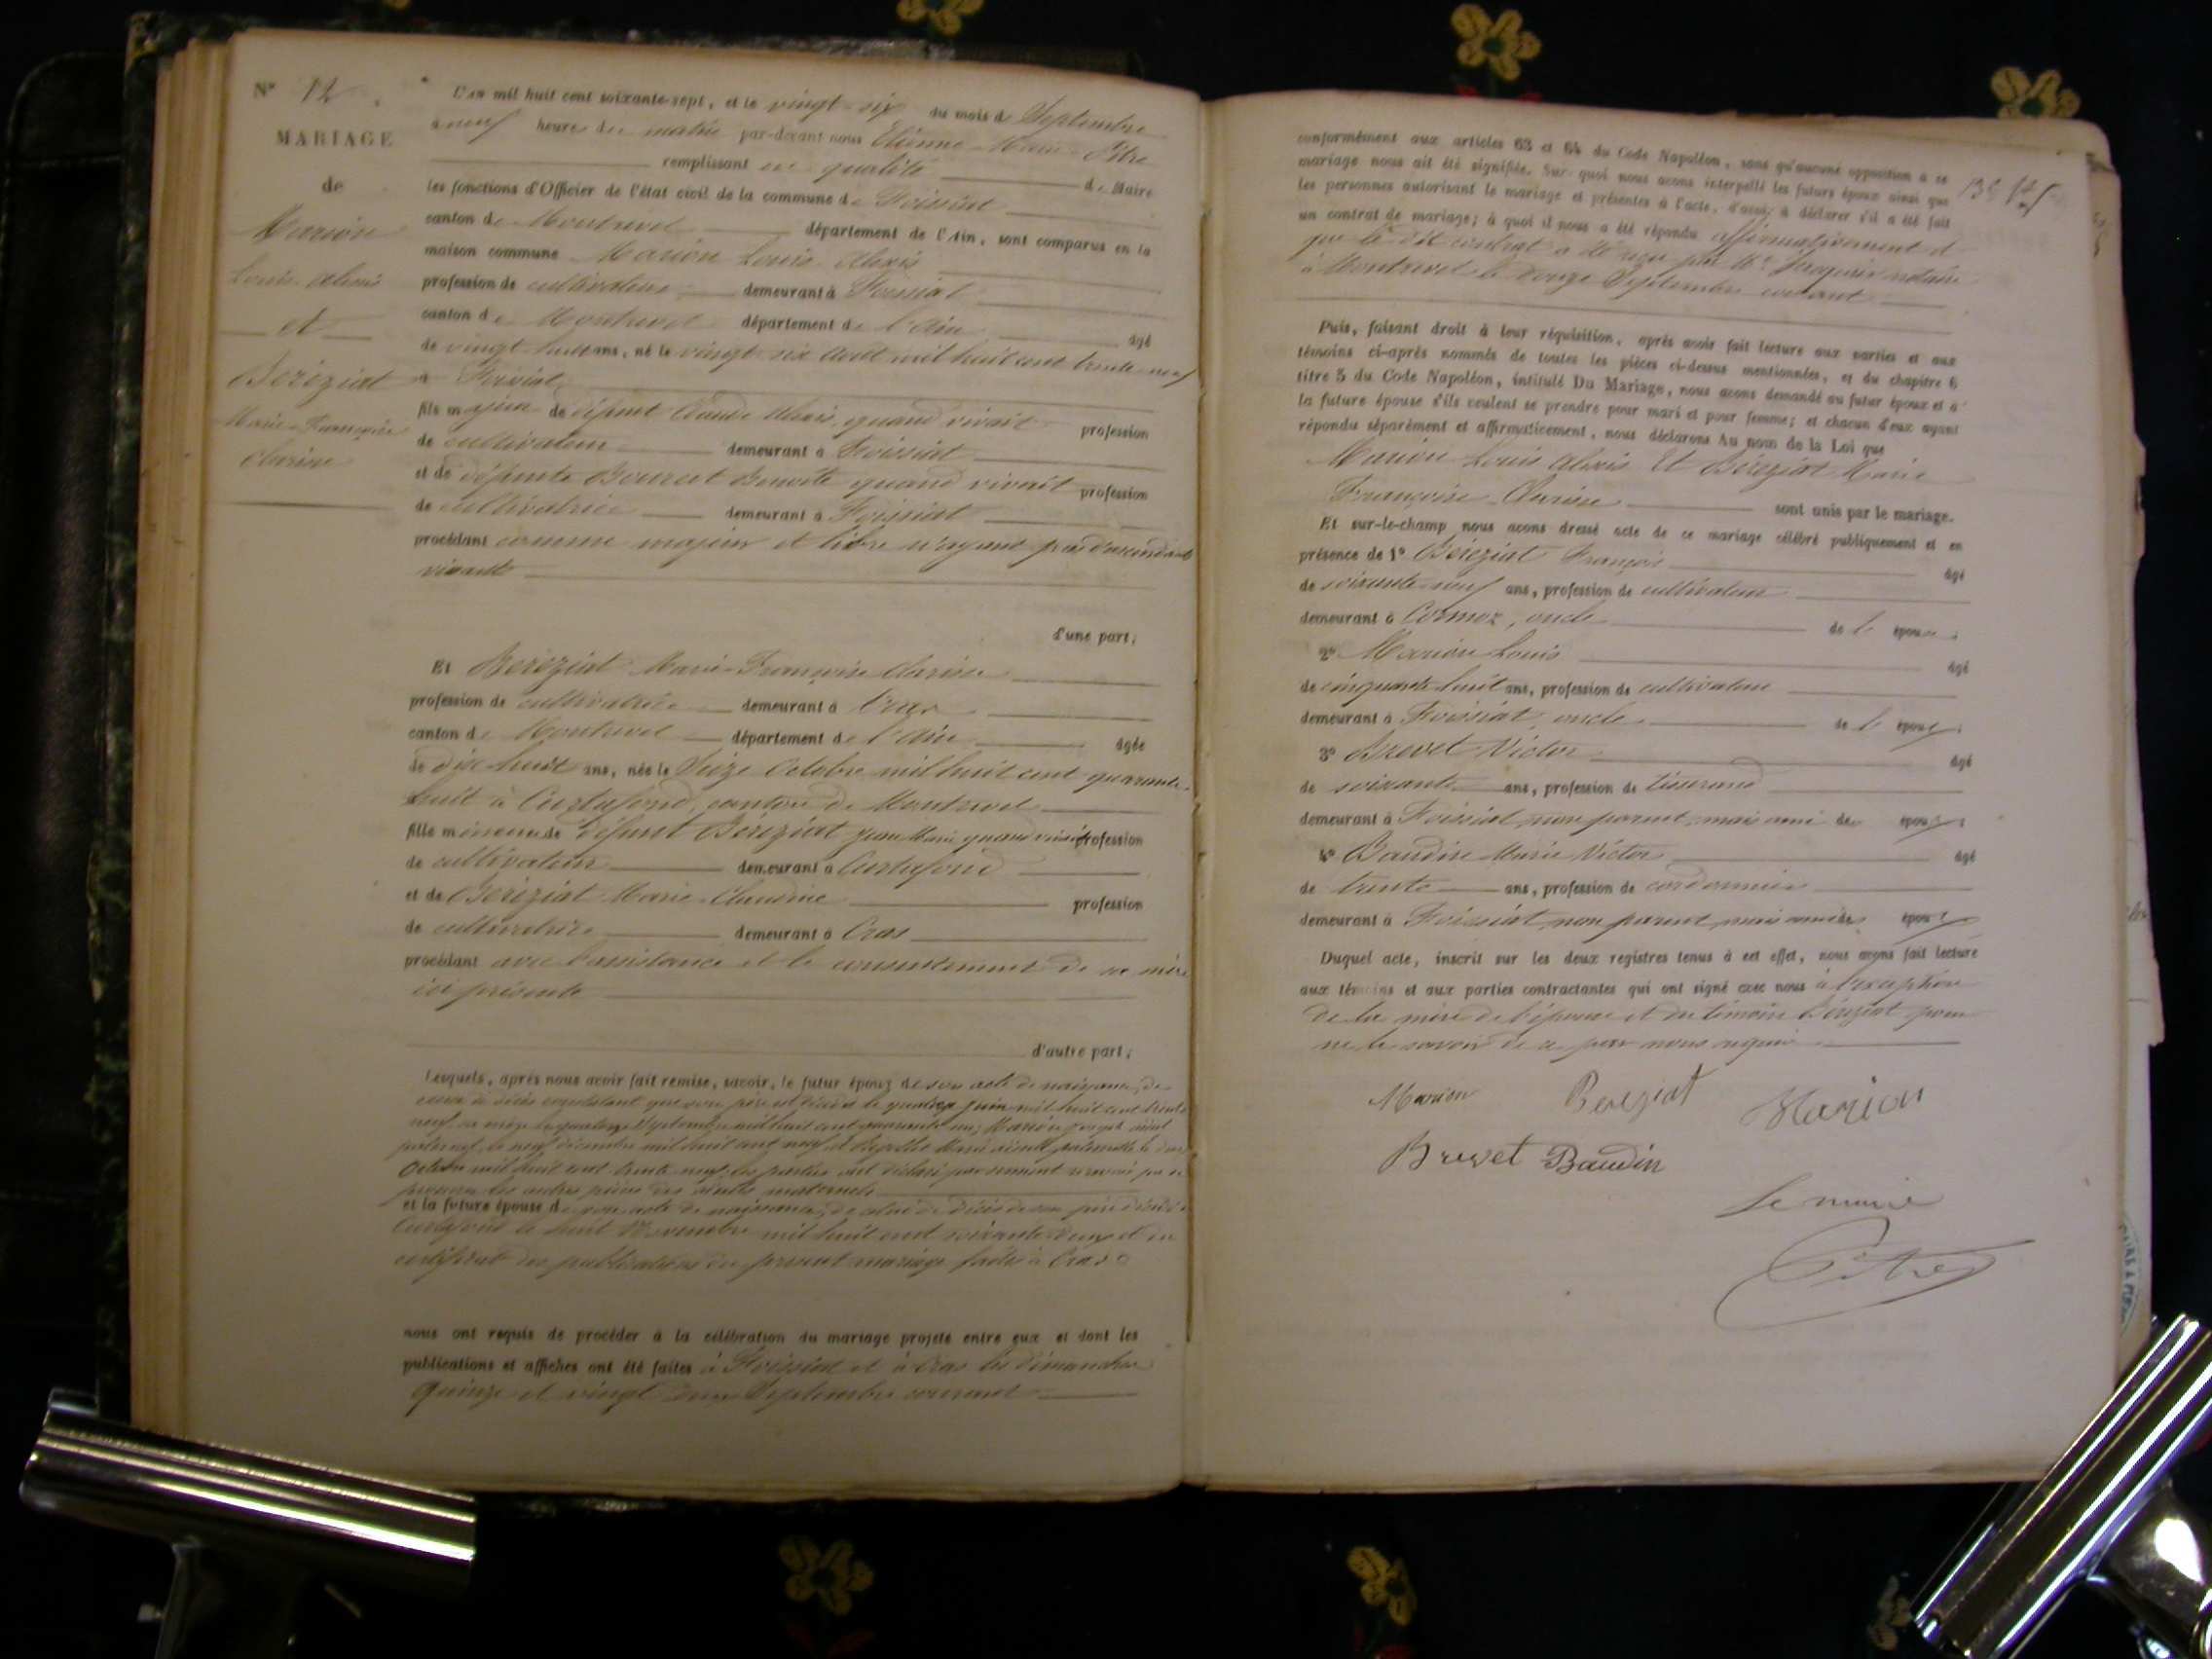 N° 12.
MARIAGE
de
Marion
Louis Alexis
et
Béréziat
Marie-Françoise
Clarisse
L'an mil huit cent soixante-sept, et le vingt-six du mois de Septembre
à neuf heures du matin par-devant nous Etienne-Marie Pitre
remplissant en qualité de Maire
les fonctions d'Officier de l'état civil de la commune de Foissiat
canton de Montrevel département de l'Ain, sont comparus en la
maison commune Marion Louis Alexis
profession de cultivateur demeurant à Foissiat
canton de Montrevel département de l'Ain âgé
de vingt-huit ans, né le vingt-six Août mil huit cent trente-neuf
à Foissiat
fils majeur de défunt Claude Alexis, quand vivait profession
de cultivateur demeurant à Foissiat
et de défunte Benoite quand vivait profession
de cultivatrice demeurant à Foissiat
procédant comme majeur et libre n'ayant pas d'ascendants
vivants
d'une part;
Et Béréziat Marie-Françoise Clarisse
profession de cultivatrice demeurant à Cras
canton de Montrevel département de l'Ain âgée
de dix-huit ans, née le Seize Octobre mil huit cent quarante-
huit à Curtafond, canton de Montrevel
fille mineure de défunt Béréziat Jean Marie quand vivait profession
de cultivateur demeurant à Curtafond
et de Béréziat Marie-Claudine profession
de cultivatrice demeurant à Cras
procédant avec l'assistance et le consentement de sa mère
ici présente
d'autre part;
Lesquels, après nous avoir fait remise, savoir, le futur époux de son acte de naissance, de
ceux de décès constatant que son père est décédé le Juin mil huit cent trente
neuf, sa mère le quatorze Septembre mil huit cent quarante un, Marion aïeul
paternel, le neuf décembre mil huit cent neuf, et Marie aïeule paternelle le
Octobre mil huit cent trente neuf, les parties ont déclaré par serment
maternels
et la future épouse de son acte de naissance, de celui de décès de son père décédé à
Curtafond le huit Novembre mil huit cent soixante deux et du
certificat des publications du présent mariage faites à Cras
nous ont requis de procéder à la célébration du mariage projeté entre eux et dont les
publications et affiches ont été faites à Foissiat et à Cras les dimanches
quinze et vingt deux Septembre courant
conformément aux articles 63 et 64 du Code Napoléon, sans qu'aucune opposition à ce
mariage nous ait été signifiée. Sur quoi nous avons interpellé les futurs époux ainsi que
les personnes autorisant le mariage et présentes à l'acte, d'avoir à déclarer s'il a été fait
un contrat de mariage; à quoi il nous a été répondu affirmativement et
que le dit contrat a été reçu par Me notaire
à Montrevel le douze Septembre courant
Puis, faisant droit à leur réquisition, après avoir fait lecture aux parties et aux
témoins ci-après nommés de toutes les pièces ci-dessus mentionnées, et du chapitre 6
titre 5 du Code Napoléon, intitulé Du Mariage, nous avons demandé au futur époux et à
la future épouse s'ils veulent se prendre pour mari et pour femme; et chacun d'eux ayant
répondu séparément et affirmativement, nous déclarons Au nom de la Loi que
Marion Louis Alexis Et Béréziat Marie
Françoise Clarisse sont unis par le mariage.
Et sur-le-champ nous avons dressé acte de ce mariage célébré publiquement et en
présence de 1° Béréziat François âgé
de soixante-neuf ans, profession de cultivateur
demeurant à Cormoz, oncle de l'épouse;
2° Marion Louis âgé
de cinquante-huit ans, profession de cultivateur
demeurant à Foissiat, oncle de l'époux;
3° Brevet Victor âgé
de soixante ans, profession de tisserand
demeurant à Foissiat non parent, mais ami des époux;
4° Baudin Marie Victor âgé
de trente ans, profession de cordonnier
demeurant à Foissiat non parent, mais ami des époux
Duquel acte, inscrit sur les deux registres tenus à cet effet, nous avons fait lecture
aux témoins et aux parties contractantes qui ont signé avec nous à l'exception
de la mère de l'épouse et du témoin Béréziat pour
ne le savoir de ce par nous requis
Marion Bereziat Marion
Brevet Baudin
Le maire
Pitre